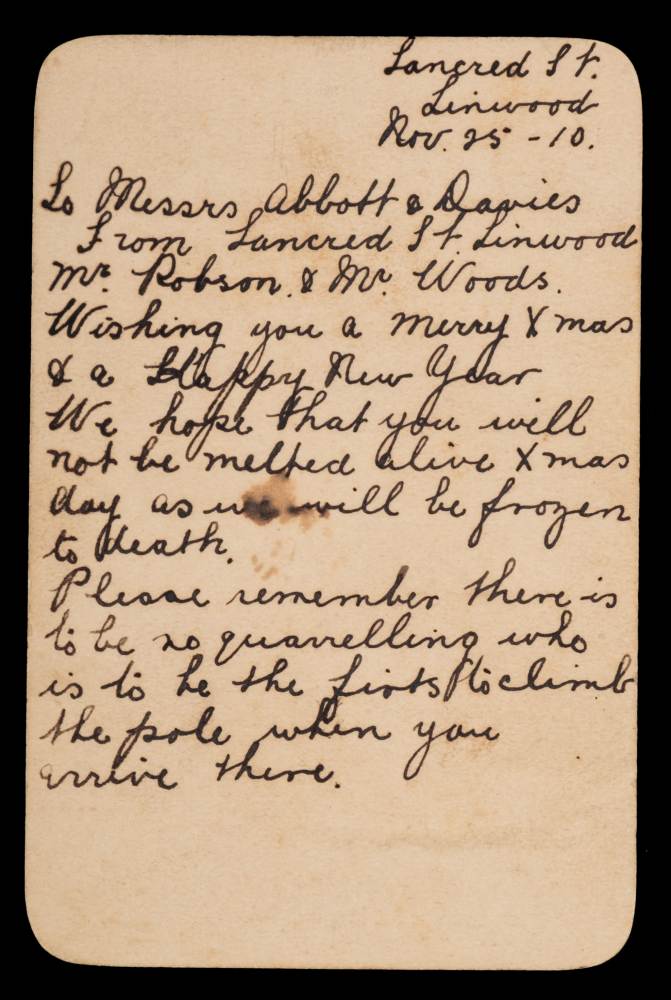 Tancred St.
Linwood
Nov. 25 - 10.
To Messrs Abbott & Davies
From Tancred St. Linwood
Mr. Robson. & Mr. Woods.
Wishing you a merry Xmas
& a Happy New Year
We hope that you will
not be melted alive Xmas
day as we will be frozen
to death.
Please remember there is
to be no quarrelling who
is to be the firsts to climb
the pole when you
arrive there.